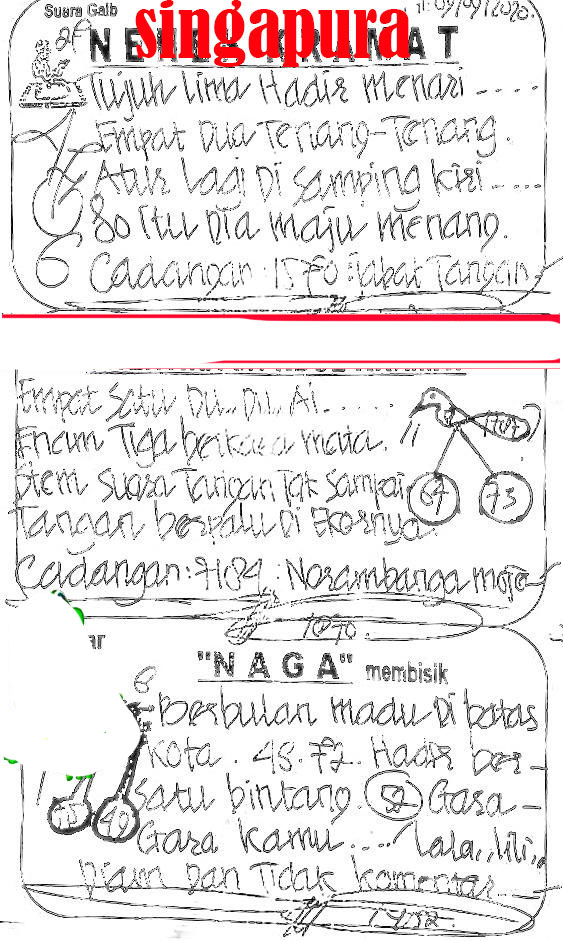 Suara Gaib
singapura
Tujuh Lima Hadir menari ....
Empat Dua Tenang-Tenang.
Atur Lagi Di samping kiri ....
80 Itu Dia maju menang.
6 Cadangan : 1570 : Jabat Tangan
Empat Satu Du.. Du.. Ai ......
Enam Tiga berkata mata.
Stem Suara Tangan Tak Sampai
67 73
Tangan berpalu Di Ekornya.
Cadangan: 7184 : Norambanga moje
1070.
"NAGA" membisik
Berbulan madu Di batas
Kota . 48.72. Hadir ber-
Satu bintang. 52 Gara-
49
Gara kamu .... Lala,,lili,,
Diam Dan Tidak komentar